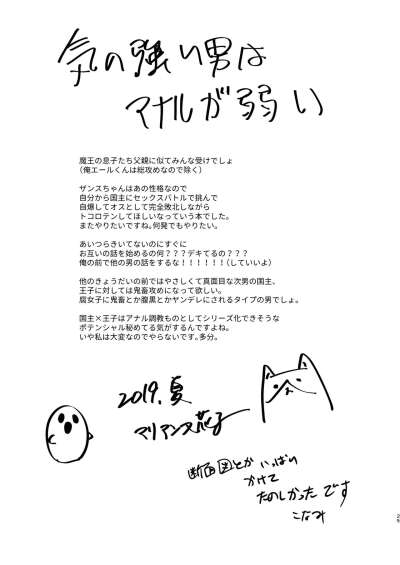 気の強い男は
アナルが弱い
魔王の息子たち父親に似てみんな受けでしょ
(俺エールくんは総攻めなので除く)
ザンスちゃんはあの性格なので
自分から国主にセックスバトルで挑んで
自爆してオスとして完全敗北しながら
トコロテンしてほしいなっていう本でした。
またやりたいですね。何発でもやりたい。
あいつらきいてないのにすぐに
お互いの話を始めるの何???デキてるの???
俺の前で他の男の話をするな!!!!!!(していいよ)
他のきょうだいの前ではやさしくて真面目な次男の国主、
王子に対しては鬼畜攻めになって欲しい。
腐女子に鬼畜とか腹黒とかヤンデレにされるタイプの男でしょ。
国主×王子はアナル調教ものとしてシリーズ化できそうな
ポテンシャル秘めてる気がするんですよね。
いや私は大変なのでやらないです。多分。
2019.夏
マリアンヌ荒子
断面図とかいっぱい
かけて
たのしかったです
こなみ
29